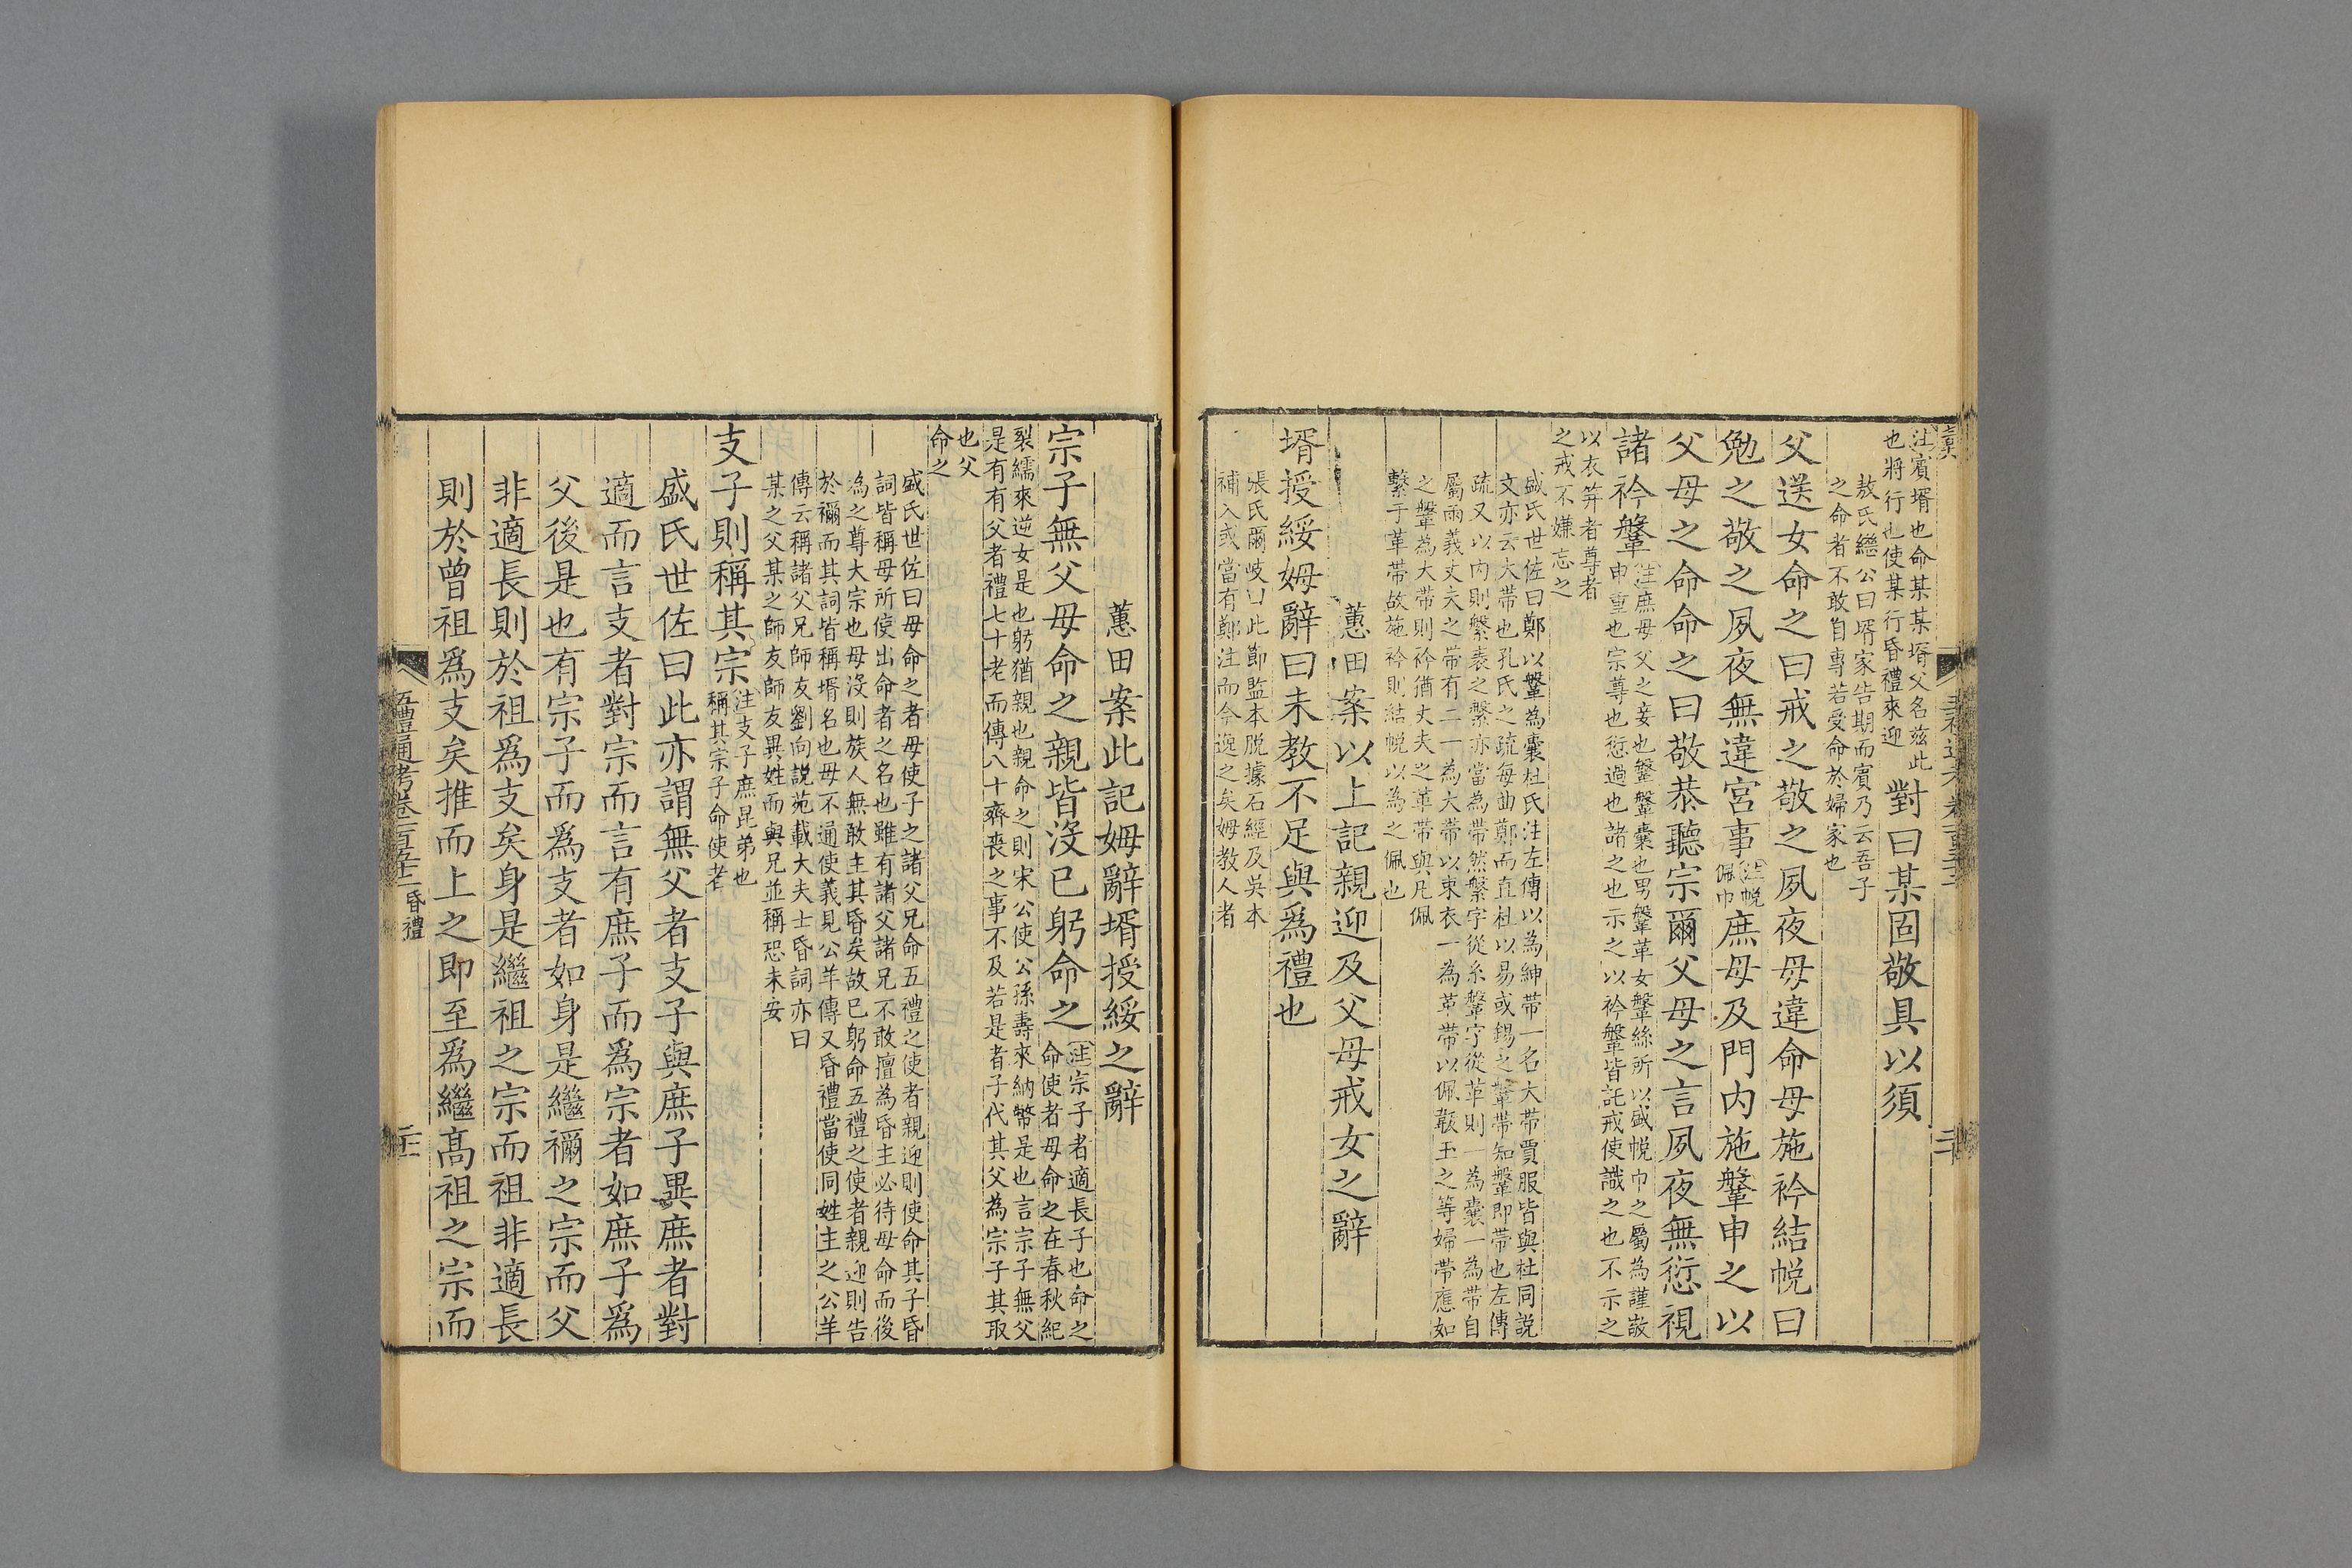 注賓壻也命某某壻父名兹此
也將行也使某行昏禮來迎
對曰某固敬具以須
敖氏繼公曰壻家告期而賓乃云吾子
之命者不敢自專若受命於婦家也
父送女命之曰戒之敬之夙夜毋違命母施衿結帨曰
勉之敬之夙夜無違宮事
注帨
佩巾
庶母及門内施鞶申之以
父母之命命之曰敬恭聽宗爾父母之言夙夜無愆視
諸衿鞶
注庶母父之妾也鞶鞶囊也男鞶革女鞶絲所以盛帨巾之屬為謹敬
申重也宗尊也愆過也諸之也示之以衿鞶皆託戒使識之也不示之
以衣笄者尊者
之戒不嫌忘之
盛氏世佐曰鄭以鞶為囊杜氏注左傳以為紳帶一名大帶賈服皆與杜同說
文亦云大帶也孔氏之疏每曲鄭而直杜以易或錫之鞶帶知鞶即帶也左傳
疏又以内則繁袠之繁亦當為帶然繁字從糸鞶字從革則一為囊一為帶自
屬兩義丈夫之帶有二一為大帶以束衣一為革帶以佩韍玉之等婦帶應如
之鞶為大帶則衿猶丈夫之革帶與凡佩
繫于革帶故施衿則結帨以為之佩也
蕙田案以上記親迎及父母戒女之辭
壻授綏姆辭曰未教不足與爲禮也
張氏爾岐曰此節監本脱據石經及吳本
補入或當有鄭注而今逸之矣姆教人者
五禮通考卷一百五十二
二十
蕙田案此記姆辭壻授綏之辭
宗子無父母命之親皆没已躬命之
注宗子者適長子也命之
命使者母命之在春秋紀
裂繻來逆女是也躬猶親也親命之則宋公使公孫壽來納幣是也言宗子無父
是有有父者禮七十老而傳八十齊喪之事不及若是者子代其父為宗子其取
也父
命之
盛氏世佐曰母命之者母使子之諸父兄命五禮之使者親迎則使命其子昏
詞皆稱母所使出命者之名也雖有諸父諸兄不敢擅為昏主必待母命而後
為之尊大宗也母没則族人無敢主其昏矣故已躬命五禮之使者親迎則告
於禰而其詞皆稱壻名也母不通使義見公羊傳又昏禮當使同姓主之公羊
傳云稱諸父兄師友劉向說苑載大夫士昏詞亦曰
某之父某之師友師友異姓而與兄並稱恐未安
支子則稱其宗
注支子庶昆弟也
稱其宗子命使者
盛氏世佐曰此亦謂無父者支子與庶子異庶者對
適而言支者對宗而言有庶子而爲宗者如庶子爲
父後是也有宗子而爲支者如身是繼禰之宗而父
非適長則於祖爲支矣身是繼祖之宗而祖非適長
則於曾祖爲支矣推而上之即至爲繼高祖之宗而
五禮通考卷一百五十二 昏禮
二十一